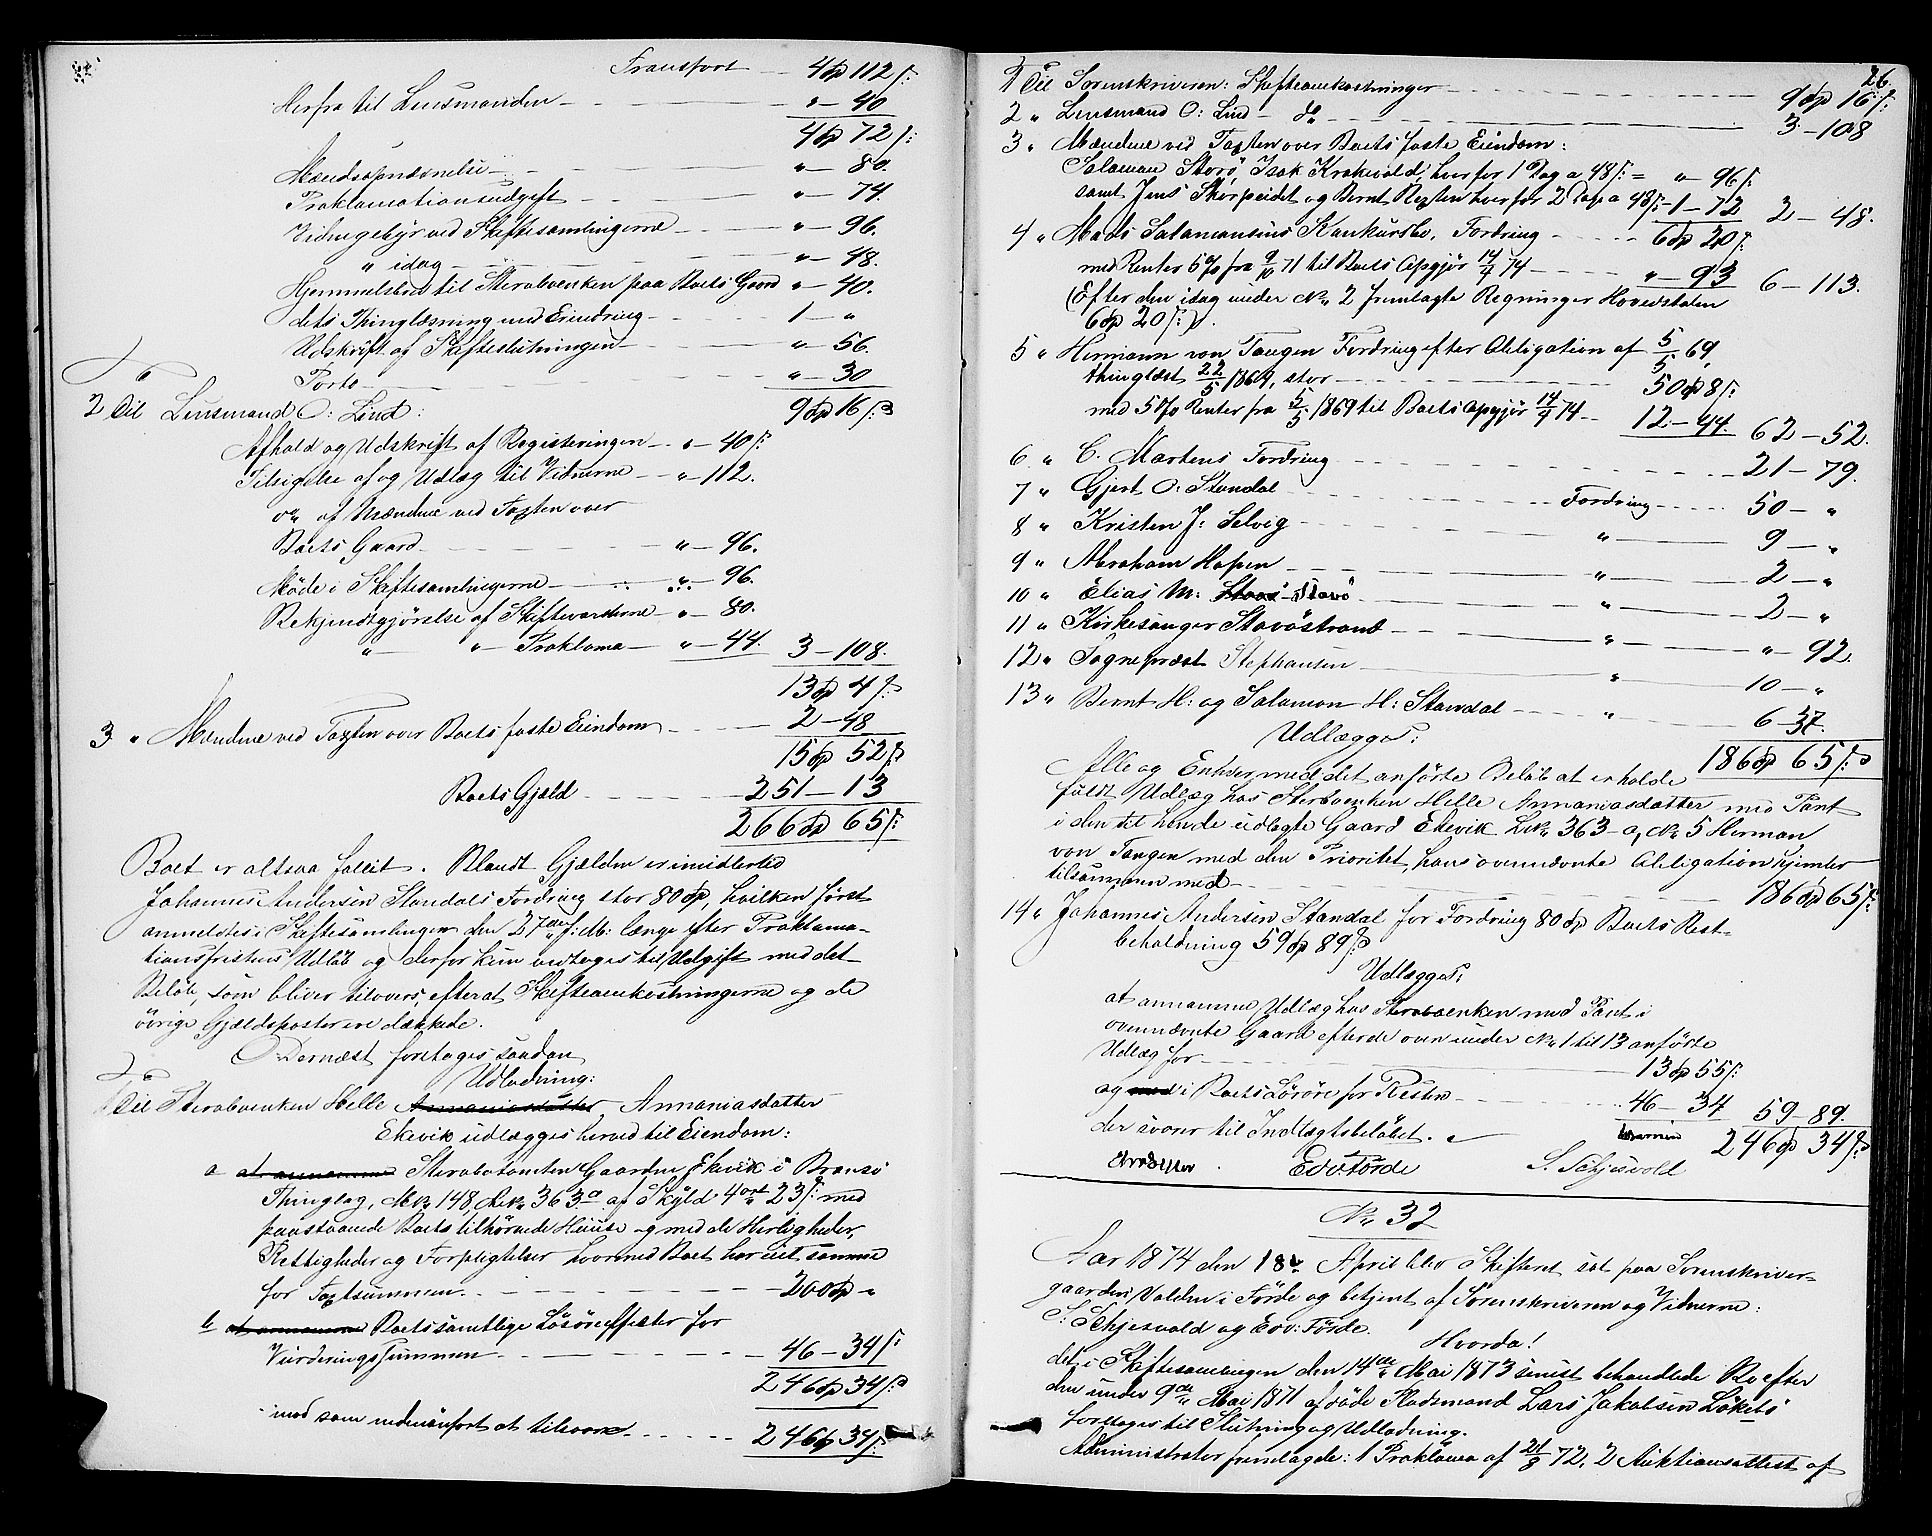 Transport 4 Sp 112 s:
Herfra til Lensmanden " — 40
4 Sp 72 s:
Mændsopnævnelse " — 80.
Proklamationsudgift " — 74.
Vidnegebyr ved Skiftesamlingerne " — 96.
" idag " — 48.
Hjemmelsbrev til Sterboenken paa Boets Gaard " — 40.
dets Thinglæsning med Erindring 1 — "
Udskrift af Skifteslutningen " — 56.
Porto " — 30
9 Sp 16 s:
2 Til Lensmand O: Lind:
Afhold og Udskrift af Registeringen " — 40 s:
Tilsigelse af og Udlæg til Vidnerne " — 112.
do af Mændene ved Taxten over
Boets Gaard " — 96.
Møde i Skiftesamlingerne " — 96.
Bekjendtgjørelse af Skiftevarslerne " — 80.
" " Proklama " — 44. 3 — 108.
13 Sp 4 s:
3 " Mændene ved Taxten over Boets faste Eiendom 2 — 48
15 Sp 52 s:
Boets Gjæld 251 — 13
266 Sp 65 s:
Boet er altsaa fallit. Blandt Gjælden er imidlertid
Johannes Andersen Standals Fordring stor 80 Sp, hvilken først
anmeldtes i Skiftesamlingen den 27de f: M: længe efter Proklama-
tionsfristens Udløb og derfor kun vedtages til Udgift med det
Beløb, som bliver tilovers, efterat Skifteomkostningerne og de
øvrige Gjældsposter ere dækkede.
Dernæst foretages saadan
Udlodning:
1 Til Sterboenken Helle Annaniasdatter Annaniasdatter
Ekevik udlægges herved til Eiendom:
a at annamme Sterbotomten Gaarden Ekevik i Bremsø
Thinglag, M.No 148, L.No 363 a af Skyld 4 ort 23 s: med
paastaaende Boets tilhørende Huuse og med de Herligheder,
Rettigheder og Forpligtelser hvormed Boet har eiet samme
for Taxtsummen 200 Sp "
b at annamme Boets samtlige Løsøreeffekter for
Vurderingssummen 46 — 34 s:
246 Sp 34 s:
mod som nedenanført at tilsvare 246 Sp 34 s:
26.
1 Til Sorenskriveren: Skifteomkostninger 9 Sp 16 s:
2 " Lensmand O: Lind — do 3 — 108
3 " Mændene ved Taxten over Boets faste Eiendom:
Salamon Storø, Isak Krakevold, hver for 1 Dag a 48 s: = " 96 s:
samt Jens Skorpeidet og Bernt Rexten hver for 2 Dage a 48 s: — 1 — 72 2 — 48.
4 " Mads Salamonsens Konkursbo, Fordring 6 Sp 20 s:
med Renter 5 % fra 9/10 71 til Boets Opgjør 14/4 74 " — 93 6 — 113.
(Efter den idag under No 2 fremlagte Regninger Hovedstolen
6 Sp 20 s:).
5 " Hermann von Tangen Fordring efter Obligation af 5/5 69,
thinglæst 22/5 1869, stor 50 Sp 8 s:
med 5 % Renter fra 5/5 1869 til Boets Opgjør 14/4 74 12 — 44. 62 — 52.
6 " C. Martens Fordring 21 — 79.
7 " Gjert O: Standal Fordring 50 — "
8 " Kristen J: Selvig " 9 — "
9 " Abraham Hopen " 2 — "
10 " Elias M: Stavø " 2 — "
11 " Kirkesanger Stavøstrand " " — 92.
12 " Sognepræst Stephansen " 10 — "
13 " Bernt H: og Salamon H: Standal " 6 — 37.
Udlægges: 186 Sp 65 s:
Alle og Enhver med det anførte Beløb at erholde
fuldt Udlæg hos Sterboenken Helle Annaniasdatter med Pant
i den til hende udlagte Gaard Ekevik L.No 363 a, No 5 Herman
von Tangen med den Prioritet, hans ovennævnte Obligation hjemler
tilsammen med 186 Sp 65 s:
14 " Johannes Andersen Standal for Fordring 80 Sp Boets Rest-
beholdning 59 Sp 89 s:
Udlægges:
at annamme Udlæg hos Sterboenken med Pant i
ovennævnte Gaard efter de oven under No 1 til 13 anførte
Udlæg for 13 Sp 55 s:
og med i Boets Løsøre for Resten 46 — 34 59 — 89.
der svarer til Indtægtsbeløbet. 246 Sp 34 s:
Edv: Førde S. Schjesvold
No 32
Aar 1874 den 18de April blev Skifteret sat paa Sorenskriver-
gaarden Valden i Førde og betjent af Sorenskriveren og Vidnerne:
S: Schjesvold og Edv: Førde.
Hvorda!
det i Skiftesamlingen den 14de Mai 1873 senest behandlede Bo efter
den under 9de Mai 1871 afdøde Pladsmand Lars Jakobsen Løkets
foretages til Slutning og Udlodning.
Administrator fremlagde: 1 Proklama af 21/8 72, 2 Auktionsattest af